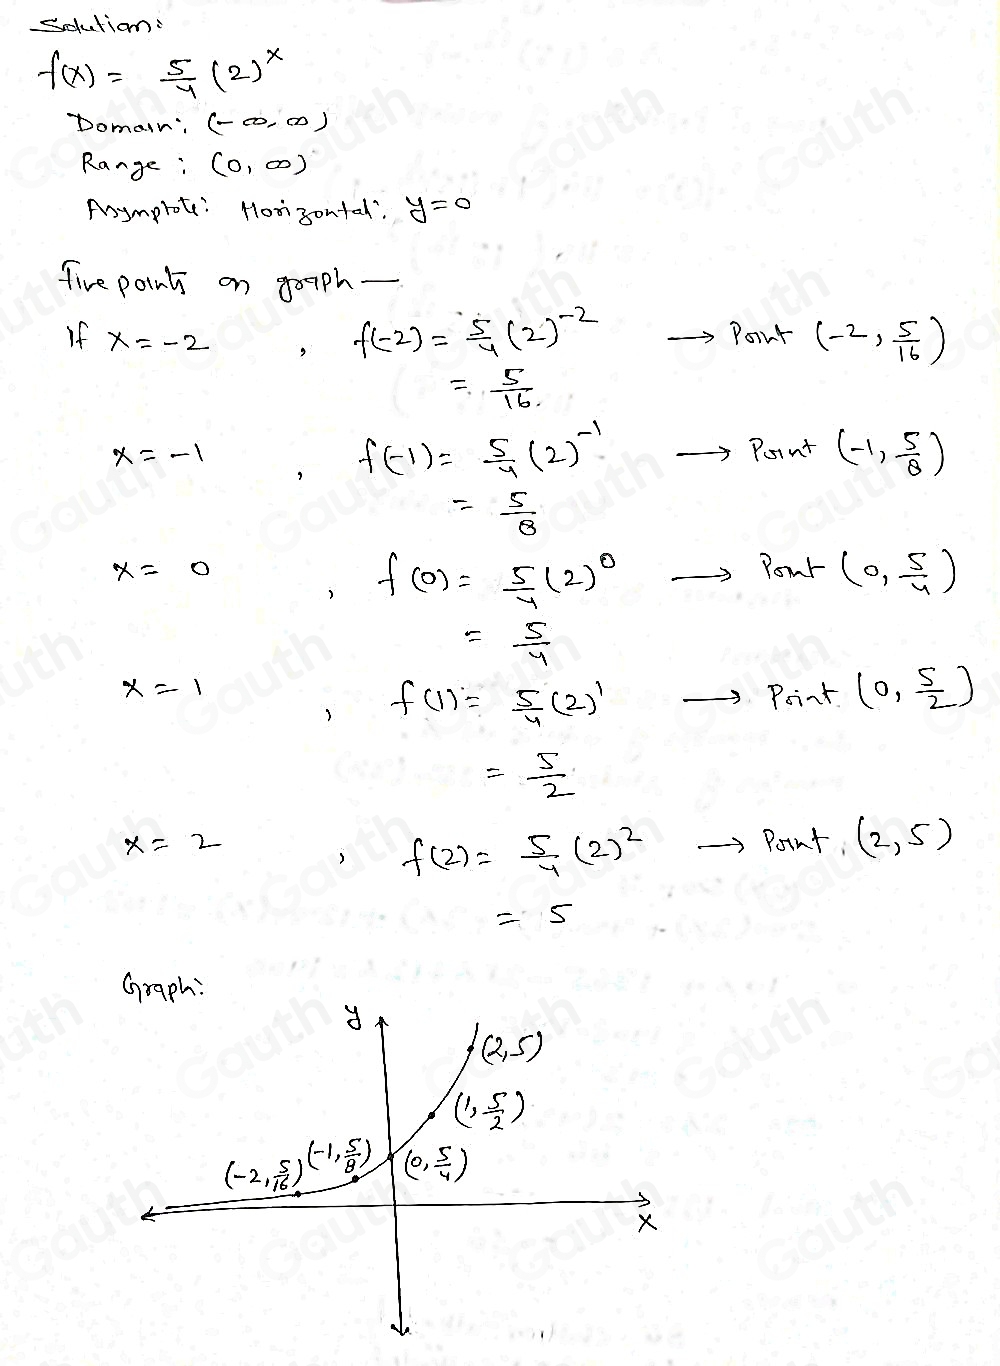 Solution:
f(x) = 5/4 (2)^x
Domain: (-∞, ∞)
Range : (0, ∞)
Asymptote: Horizontal: y=0
Five points on graph —
If x = -2 , f(-2) = 5/4 (2)^-2 → Point (-2, 5/16)
= 5/16.
x = -1 , f(-1) = 5/4 (2)^-1 → Point (-1, 5/8)
= 5/8
x = 0 , f(0) = 5/4 (2)^0 → Point (0, 5/4)
= 5/4
x = 1 , f(1) = 5/4 (2)^1 → Point (0, 5/2)
= 5/2
x = 2 , f(2) = 5/4 (2)^2 → Point (2, 5)
= 5
Graph:
y
(2, 5)
(1, 5/2)
(-2, 5/16) (-1, 5/8) (0, 5/4)
x
Gauth